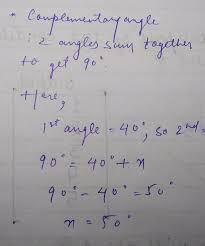 • Complementary angle
: 2 angles sum together
to get 90°
Here,
1st angle = 40°, so 2nd =
90° = 40° + x
90° - 40° = 50°
x = 50°